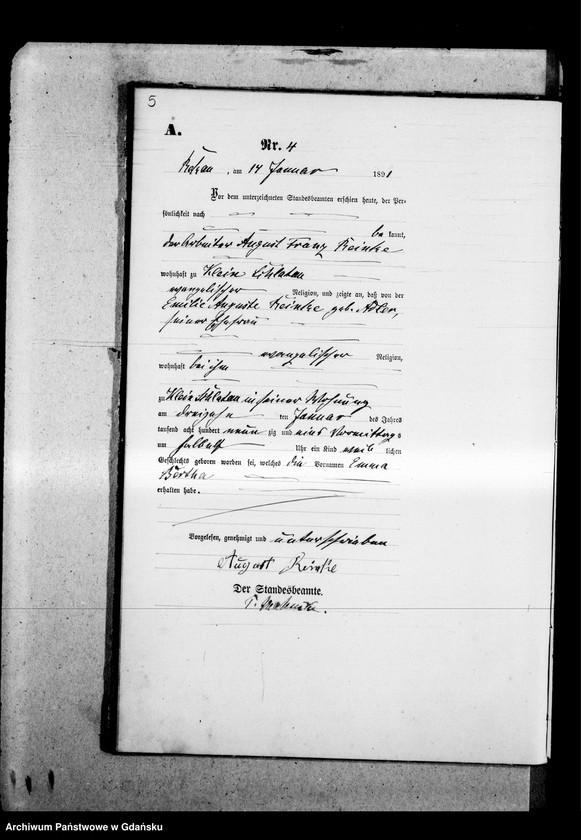 5
A.
Nr. 4
, am 14 Januar 1891
Vor dem unterzeichneten Standesbeamten erschien heute, der Per-
sönlichkeit nach
be kannt,
der Arbeiter August Franz Reinke
wohnhaft zu Klein
evangelischer Religion, und zeigte an, daß von der
Emilie Auguste Reinke geb. Adler,
seiner Ehefrau
evangelischer Religion,
wohnhaft bei ihm
zu Klein in seiner Wohnung
am dreizehn ten Januar des Jahres
tausend acht hundert neun zig und eins Vormittags
um halb elf Uhr ein Kind weib lichen
Geschlechts geboren worden sei, welches die Vornamen Emma
Bertha
erhalten habe.
Vorgelesen, genehmigt und unterschrieben
August Reinke
Der Standesbeamte.
Archiwum Państwowe w Gdańsku